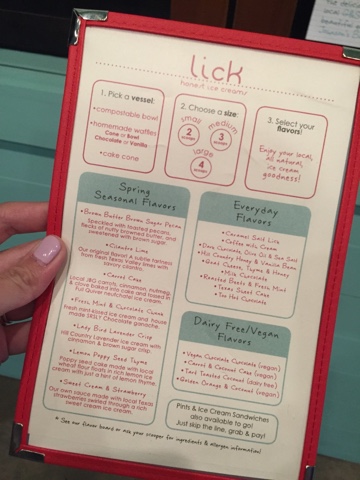 lick
honest ice creams
1. Pick a vessel:
•compostable bowl
•homemade waffles
Cone or Bowl
Chocolate or Vanilla
•cake cone
2. Choose a size:
small
2
scoops
medium
3
scoops
large
4
scoops
3. Select your
flavors!
Enjoy your local,
all natural,
ice cream
goodness!
Spring
Seasonal Flavors
•Brown Butter Brown Sugar Pecan
Speckled with toasted pecans,
flecks of nutty browned butter, and
sweetened with brown sugar.
•Cilantro Lime
Our original flavor! A subtle tartness
from fresh Texas Valley limes with
savory cilantro.
•Carrot Cake
Local JBG carrots, cinnamon, nutmeg,
& clove baked into cake and tossed in
Full Quiver neufchatel ice cream.
•Fresh Mint & Chocolate Chunk
Fresh mint-kissed ice cream and house
made SRSLY Chocolate ganache.
•Lady Bird Lavender Crisp
Hill Country Lavender ice cream with
cinnamon & brown sugar crisp.
•Lemon Poppy Seed Thyme
Poppy seed cake made with local
wheat flour floats in rich lemon ice
cream with just a hint of lemon thyme.
•Sweet Cream & Strawberry
Our own sauce made with local Texas
strawberries swirled through a rich
sweet cream ice cream.
Everyday
Flavors
•Caramel Salt Lick
•Coffee milk Cream
•Dark Chocolate, Olive Oil & Sea Salt
•Hill Country Honey & Vanilla Bean
•Goat Cheese, Thyme & Honey
•Milk Chocolate
•Roasted Beets & Fresh Mint
•Texas Sheet Cake
•Too Hot Chocolate
Dairy Free/Vegan
Flavors
•Vegan Chocolate Chocolate (vegan)
•Carrot & Coconut Cake (vegan)
•Toasted Coconut (dairy free)
•Golden Orange & Coconut (vegan)
Pints & Ice Cream Sandwiches
also available to go!
Just skip the line, grab & pay!
* See our flavor board or ask your scooper for ingredients & allergen information!